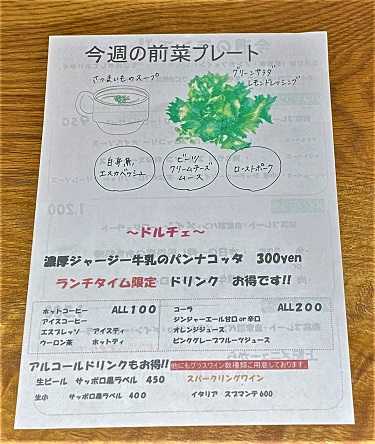 今週の前菜プレート
さつまいものスープ
グリーンサラダ
レモンドレッシング
白身魚
エスカベッシュ
ビーツ
クリームチーズ
ムース
ローストポーク
～ドルチェ～
濃厚ジャージー牛乳のパンナコッタ 300yen
ランチタイム限定 ドリンク お得です!!
ホットコーヒー ALL100
アイスコーヒー
エスプレッソ アイスティ
ウーロン茶 ホットティ
コーラ ALL200
ジンジャーエール甘口or辛口
オレンジジュース
ピンクグレープフルーツジュース
アルコールドリンクもお得!! 他にもグラスワイン数種類ご用意しております
生ビール サッポロ黒ラベル 450
生小 サッポロ黒ラベル 400
スパークリングワイン
イタリア スプマンテ600